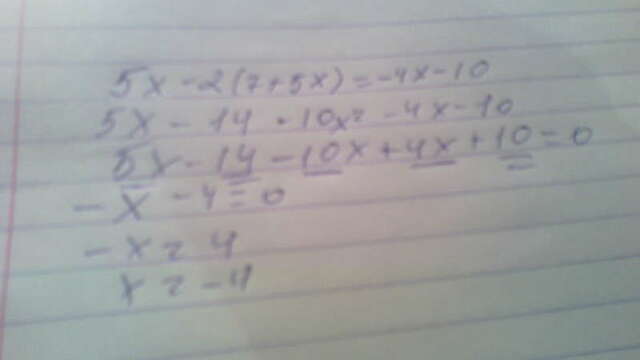 5x - 2(7+5x) = -4x - 10
5x - 14 - 10x = -4x - 10
5x - 14 - 10x + 4x + 10 = 0
- x - 4 = 0
- x = 4
x = -4